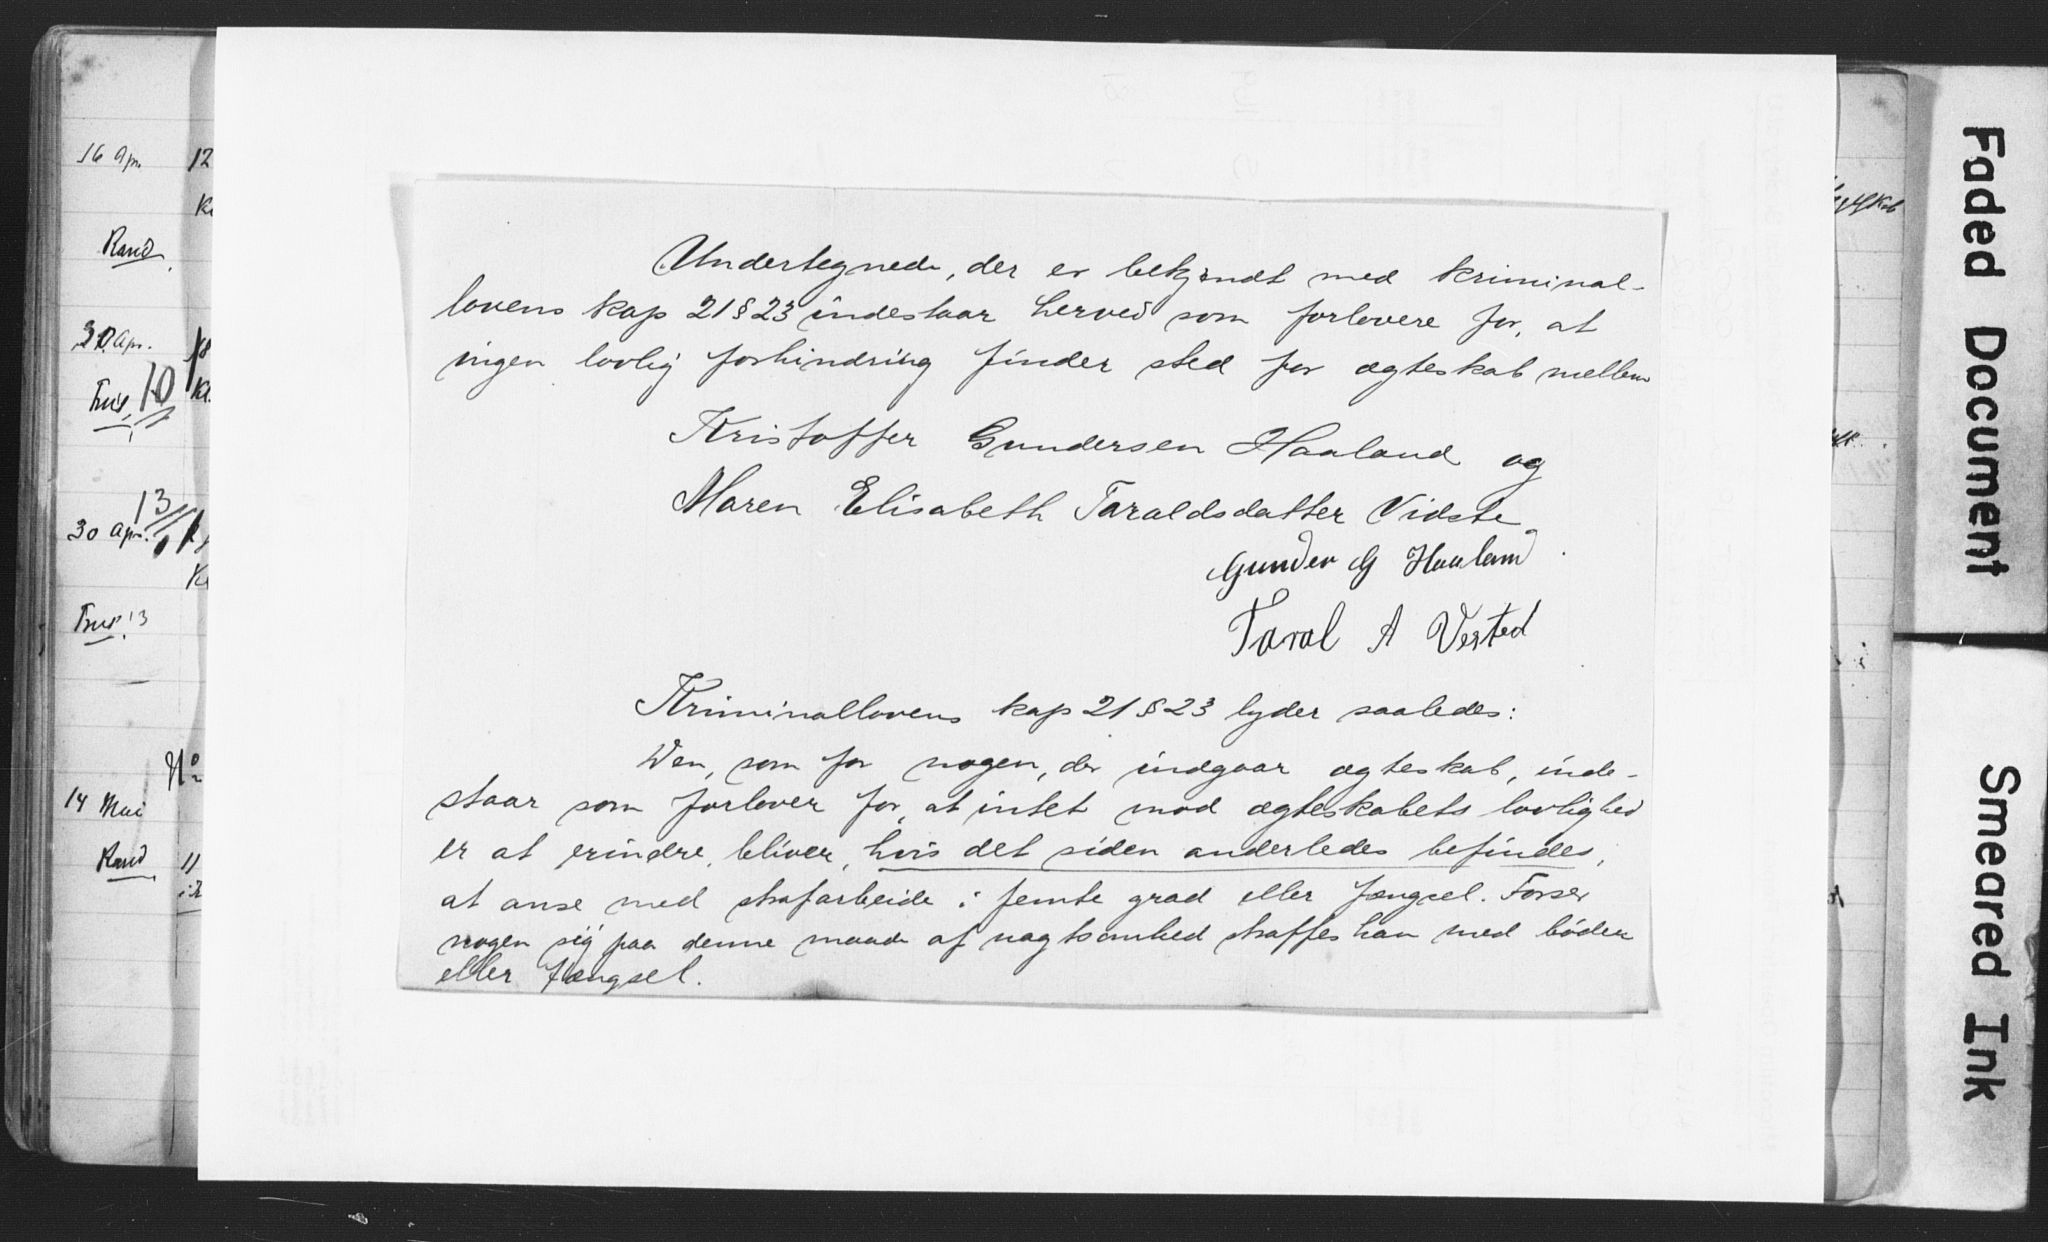 Undertegnede, der er bekjendt med kriminal-
lovens kap 21 § 23 indestaar herved som forlovere for, at
ingen lovlig forhindring finder sted for ægteskab mellem
Kristoffer Gundersen Haaland og
Maren Elisabeth Taraldsdatter Vidste
Gunder G Haaland
Taral A Vested
Kriminallovens kap 21 § 23 lyder saaledes:
Den, som for nogen, der indgaar ægteskab, inde-
staar som forlover for, at intet mod ægteskabets lovlighed
er at erindre, bliver, hvis det siden anderledes befindes,
at anse med strafarbeide i femte grad eller fængsel. Forser
nogen sig paa denne maade af uagtsomhed straffes han med bøder
eller fængsel.
16 Apr. 12
Rand.
30 Apr. 18
Trus. 10
13
30 Apr.
Trus. 13
No
14 Mai
Rand 11
Faded Document
Smeared Ink